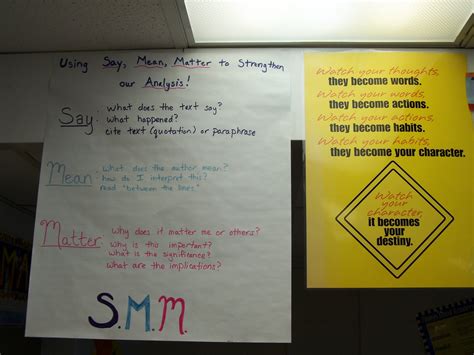 Using Say, Mean, Matter to Strengthen
our Analysis!
Say:
· What does the text say?
· What happened?
· cite text (quotation) or paraphrase
Mean:
· What does the author mean?
· how do I interpret this?
· read "between the lines"
Matter:
· Why does it matter me or others?
· Why is this important?
· What is the significance?
· What are the implications?
S.M.M.
Watch your thoughts,
they become words.
Watch your words,
they become actions.
Watch your actions,
they become habits.
Watch your habits,
they become your character.
Watch
your
character,
it becomes
your
destiny.